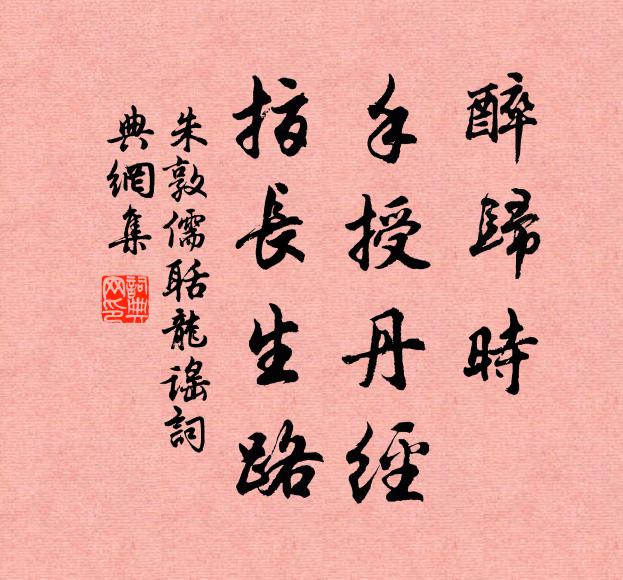 醉歸時
手授丹經
指長生路
朱敦儒聒龍謠詞
典網集
詞典網印